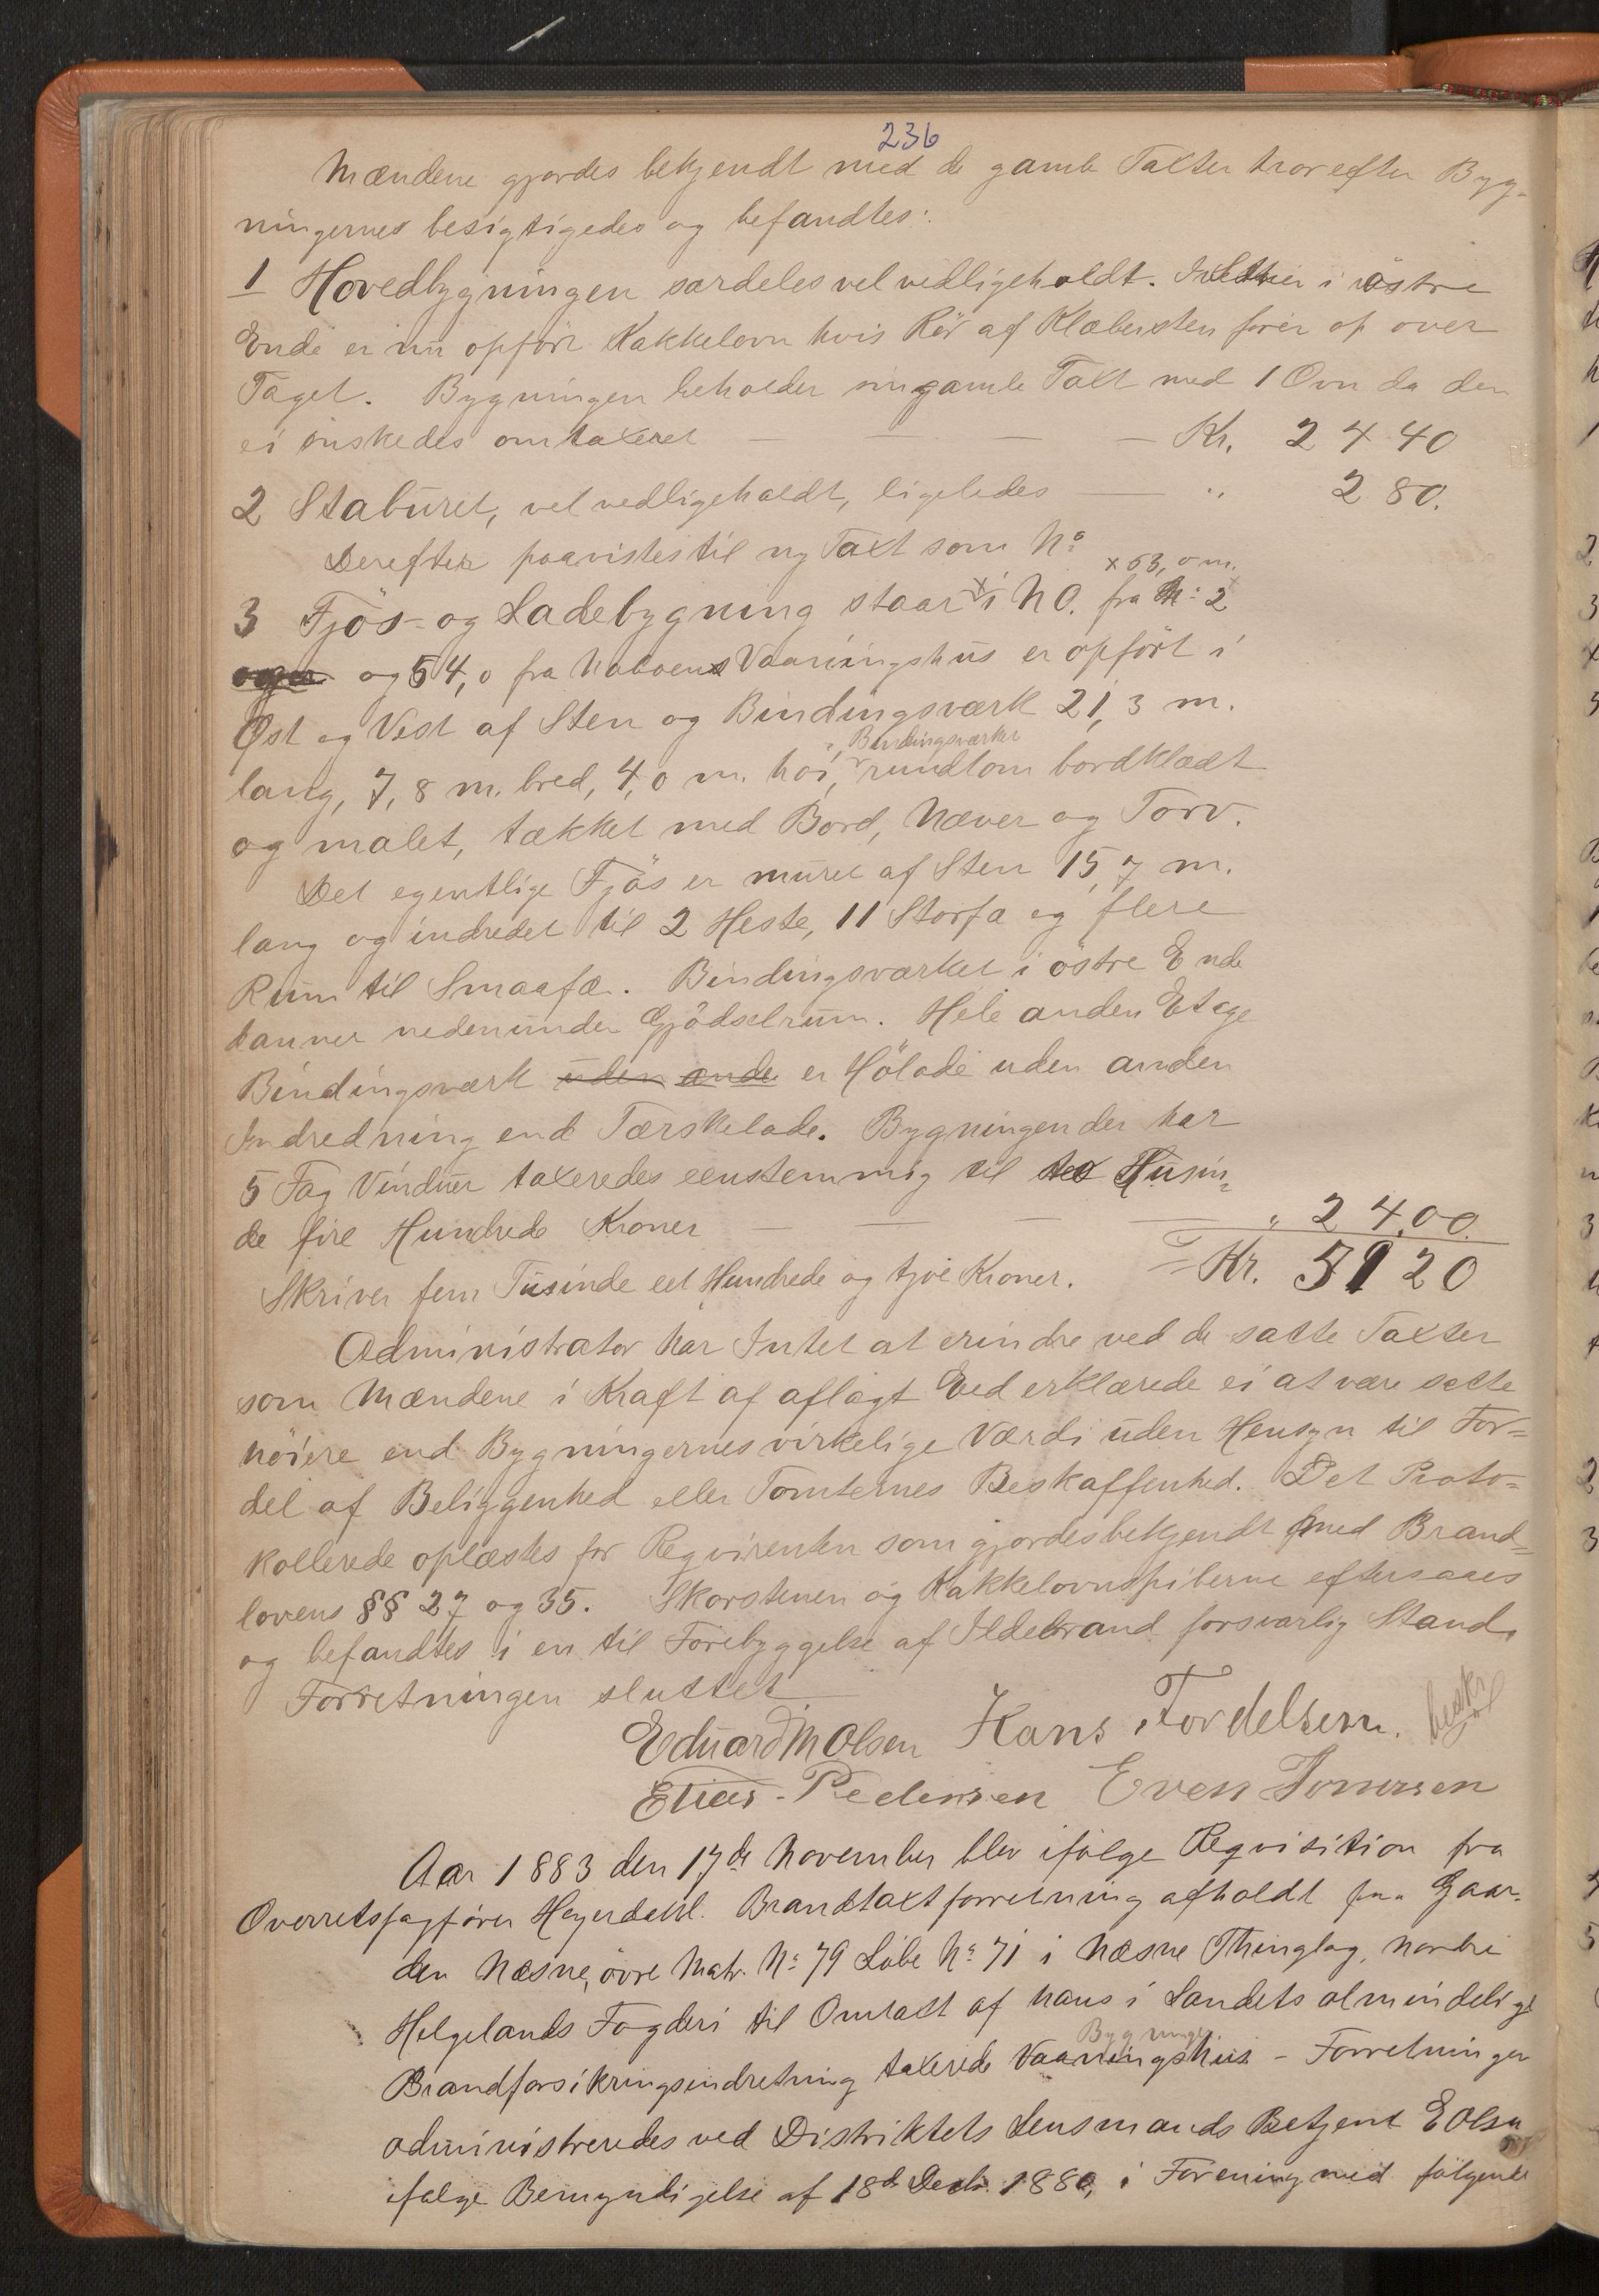 236
Mændene gjordes bekjendt med de gamle Taxter hvorefter Byg-
ningernes besigtigedes og befandtes:
1 Hovedbygningen særdeles vel vedligeholdt. i östre
Ende er nu opfört Kakkelovn hvis Rör af Klæbersten förer op over
Taget. Bygningen beholder sin gamle Taxt med 1 Ovn da den
ei önskedes omtaxeret — — — Kr. 2440
2 Staburet, vel vedligeholdt, ligeledes — " 280.
Derefter paavistes til ny Taxt som No
x 63,0 m.
3 Fjös- og Ladebygning staar x i NO. fra No 2
og 54,0 fra Naboens Vaaningshus er opfört i
Øst og Vest af Sten og Bindingsværk 21,3 m.
Bindingsværket
lang, 7,8 m. bred, 4,0 m. höi, rundtom bordklædt
og malet, tækket med Bord, Næver og Torv.
Det egentlige Fjös er muret af Sten 15,7 m.
lang og indredet til 2 Heste, 11 Storfæ og flere
Rum til Smaafæ. Bindingsværket i östre Ende
danner nedenunder Gjödselrum. Hele anden Etage
Bindingsværk uden ande er Hölade uden anden
Indredning end Tærskelade. Bygningen der har
5 Fag Vinduer taxeredes eenstemmig til to Tusin-
de fire Hundrede Kroner — — — — " 2400.
Skriver fem Tusinde eet Hundrede og tyve Kroner. = Kr. 5120
Administrator har Intet at erindre ved de satte Taxter
som Mændene i Kraft af aflagt Eed erklærede ei at være satte
höiere end Bygningernes virkelige Værdi uden Hensyn til For=
del af Beliggenhed eller Tomternes Beskaffenhed. Det Proto=
kollerede oplæstes for Reqvirenten som gjordes bekjendt med Brand=
lovens §§ 27 og 35. Skorstenen og Kakkelovnspiberne eftersaaes
og befandtes i en til Forebyggelse af Ildebrand forsvarlig Stand.
Forretningen sluttet.
Eduard M Olsen Hans Fordelsen. beskr
Elias Pedersen Even Tomassen
Aar 1883 den 17de November blev ifölge Reqvisition fra
Overretssagförer Heyerdahl. Brandtaxtforretning afholdt paa Gaar-
den Næsne, övre Matr. No 79 Löbe No 71 i Næsne Thinglag, nordre
Helgelands Fogderi til Omtaxt af hans i Landets almindelige
Bygninger.
Brandforsikringsindretning taxerede Vaaningshus - Forretningen
administreredes ved Distriktets Lensmands Betjent E Olsen
ifölge Bemyndigelse af 18de Decbr. 1880, i Forening med fölgende